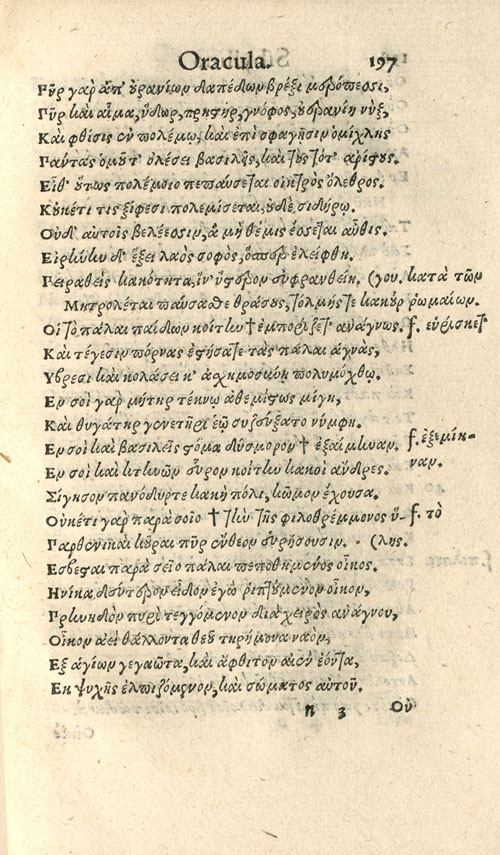 Oracula. 197
Πῦρ γὰρ ἀπ' οὐρανίων δαπέδων βρέξει μερόπεσσι,
Πῦρ καὶ αἷμα, ὕδωρ, πρηστὴρ, γνόφος, οὐρανίη νὺξ,
Καὶ φθίσις ἐν πολέμῳ, καὶ ἐπὶ σφαγῇσιν ὁμίχλης
Πάντας ὁμοῦ τ' ὀλέσει βασιλῆς, καὶ τοὺς τότ' ἀρίστους.
Εἶθ' οὕτως πολέμοιο πεπαύσεται οἰκτρὸς ὄλεθρος.
Κοὐκέτι τις ξίφεσι πολεμίσεται, οὐδὲ σιδήρῳ.
Οὐδ' αὐτοῖς βελέεσσιν, ἃ μὴ θέμις ἔσσεται αὖθις.
Εἰρήνην δ' ἕξει λαὸς σοφὸς, ὅσπερ ἐλείφθη.
Πειραθεὶς κακότητα, ἵν' ὕστερον εὐφρανθείη. (γου. κατὰ τῶν
Μητρολέται παύσασθε θράσους, τόλμης τε κακούρ ῥωμαίων.
Οἳ τὸ πάλαι παίδων κοίτην † ἐμπορίζετ' ἀνάγνως. f. εὑρίσκετ'
Καὶ τέγεσιν πόρνας ἐστήσατε τὰς πάλαι ἁγνὰς,
Ὕβρεσι καὶ κολάσει κ' ἀσχημοσύνῃ πολυμόχθῳ.
Ἐν σοὶ γὰρ μήτηρ τέκνῳ ἀθεμίστως μίγη,
Καὶ θυγάτηρ γενετῆρι ἑῷ συζεύξατο νύμφη.
Ἐν σοὶ καὶ βασιλεῖς στόμα δύσμορον † ἐξαίμιναν. f. ἐξεμίη-
Ἐν σοὶ καὶ κτηνῶν εὗρον κοίτην κακοὶ ἄνδρες. ναν.
Σίγησον πανόδυρτε κακὴ πόλι, κῶμον ἔχουσα.
Οὐκέτι γὰρ παρὰ σοῖο † τὴν τῆς φιλοθρέμμονος ὕ- f. τὸ
Παρθενικαὶ κοῦραι πῦρ ἔνθεον εὑρήσουσιν. (λης.
Ἔσβεσται παρὰ σεῖο πάλαι πεποθημένος οἶκος.
Ἡνίκα δεύτερον εἶδον ἐγὼ ῥιπτούμενον οἶκον,
Πρηνηδὸν πυρὶ τεγγόμενον διὰ χειρὸς ἀνάγνου,
Οἶκον ἀεὶ θάλλοντα θεοῦ τηρήμονα ναὸν,
Ἐξ ἁγίων γεγαῶτα, καὶ ἄφθιτον αἰὲν ἐόντα,
Ἐκ ψυχῆς ἐλπιζόμενον, καὶ σώματος αὐτοῦ.
n 3 Οὐ